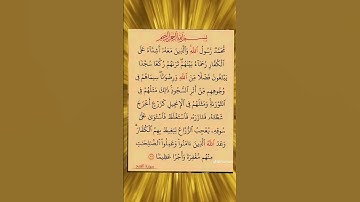 بِسْمِ اللَّهِ الرَّحْمَٰنِ الرَّحِيمِ
مُّحَمَّدٌ رَّسُولُ اللَّهِ وَالَّذِينَ مَعَهُ أَشِدَّاءُ عَلَى
الْكُفَّارِ رُحَمَاءُ بَيْنَهُمْ تَرَىٰهُمْ رُكَّعًا سُجَّدًا
يَبْتَغُونَ فَضْلًا مِّنَ اللَّهِ وَرِضْوَانًا سِيمَاهُمْ فِي
وُجُوهِهِم مِّنْ أَثَرِ السُّجُودِ ذَٰلِكَ مَثَلُهُمْ فِي
التَّوْرَىٰةِ وَمَثَلُهُمْ فِي الْإِنجِيلِ كَزَرْعٍ أَخْرَجَ
شَطْأَهُ فَآزَرَهُ فَاسْتَغْلَظَ فَاسْتَوَىٰ عَلَىٰ
سُوقِهِ يُعْجِبُ الزُّرَّاعَ لِيَغِيظَ بِهِمُ الْكُفَّارَ
وَعَدَ اللَّهُ الَّذِينَ ءَامَنُوا وَعَمِلُوا الصَّٰلِحَٰتِ
مِنْهُم مَّغْفِرَةً وَأَجْرًا عَظِيمًا
سورة الفتح